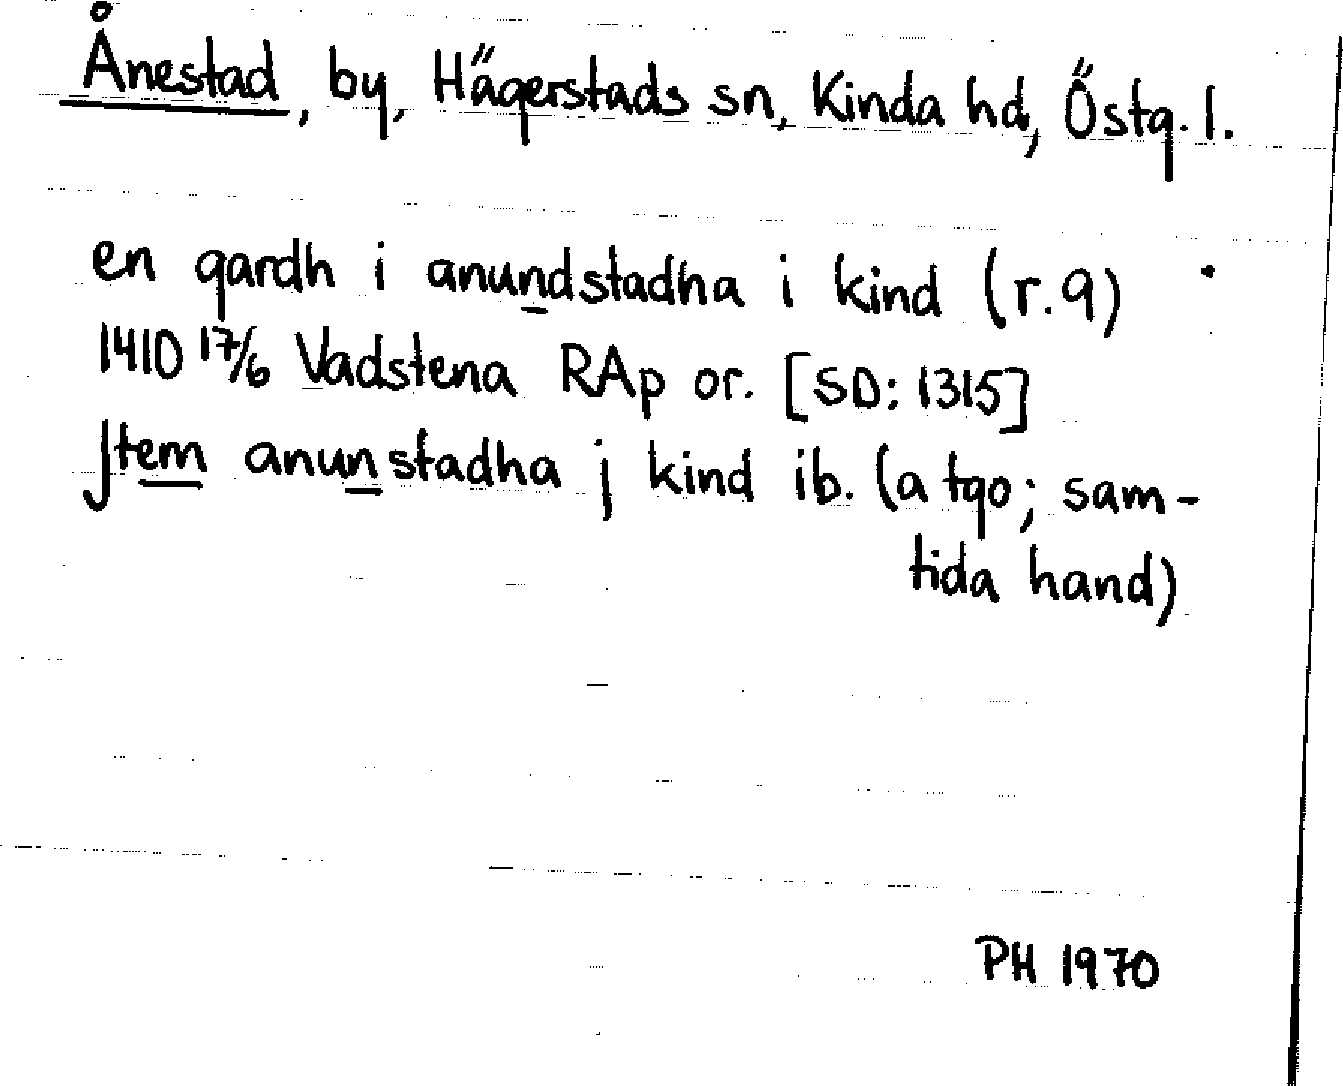 Ånestad, by, Hägerstads sn, Kinda hd, Östg. l.
en gardh i anundstadha i kind (r. 9)
1410 17/6 Vadstena RAp or. [SD: 1315]
Jtem anunstadha j kind ib. (a tgo; sam-
tida hand)
PH 1970